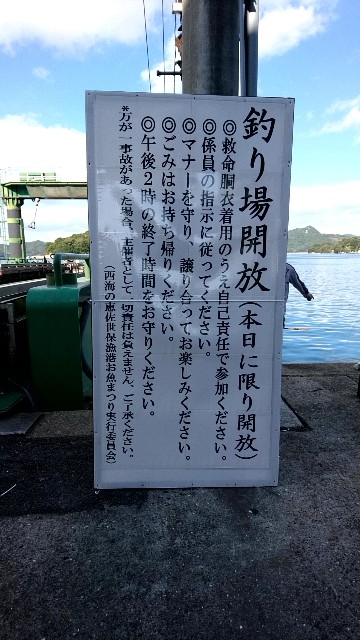 釣り場開放(本日に限り開放)
◎救命胴衣着用のうえ自己責任で参加ください。
◎係員の指示に従ってください。
◎マナーを守り、譲り合ってお楽しみください。
◎ごみはお持ち帰りください。
◎午後2時の終了時間をお守りください。
※万が一事故があった場合、主催者として一切責任は負えません。ご了承ください。
(西海の恵佐世保漁港お魚まつり実行委員会)